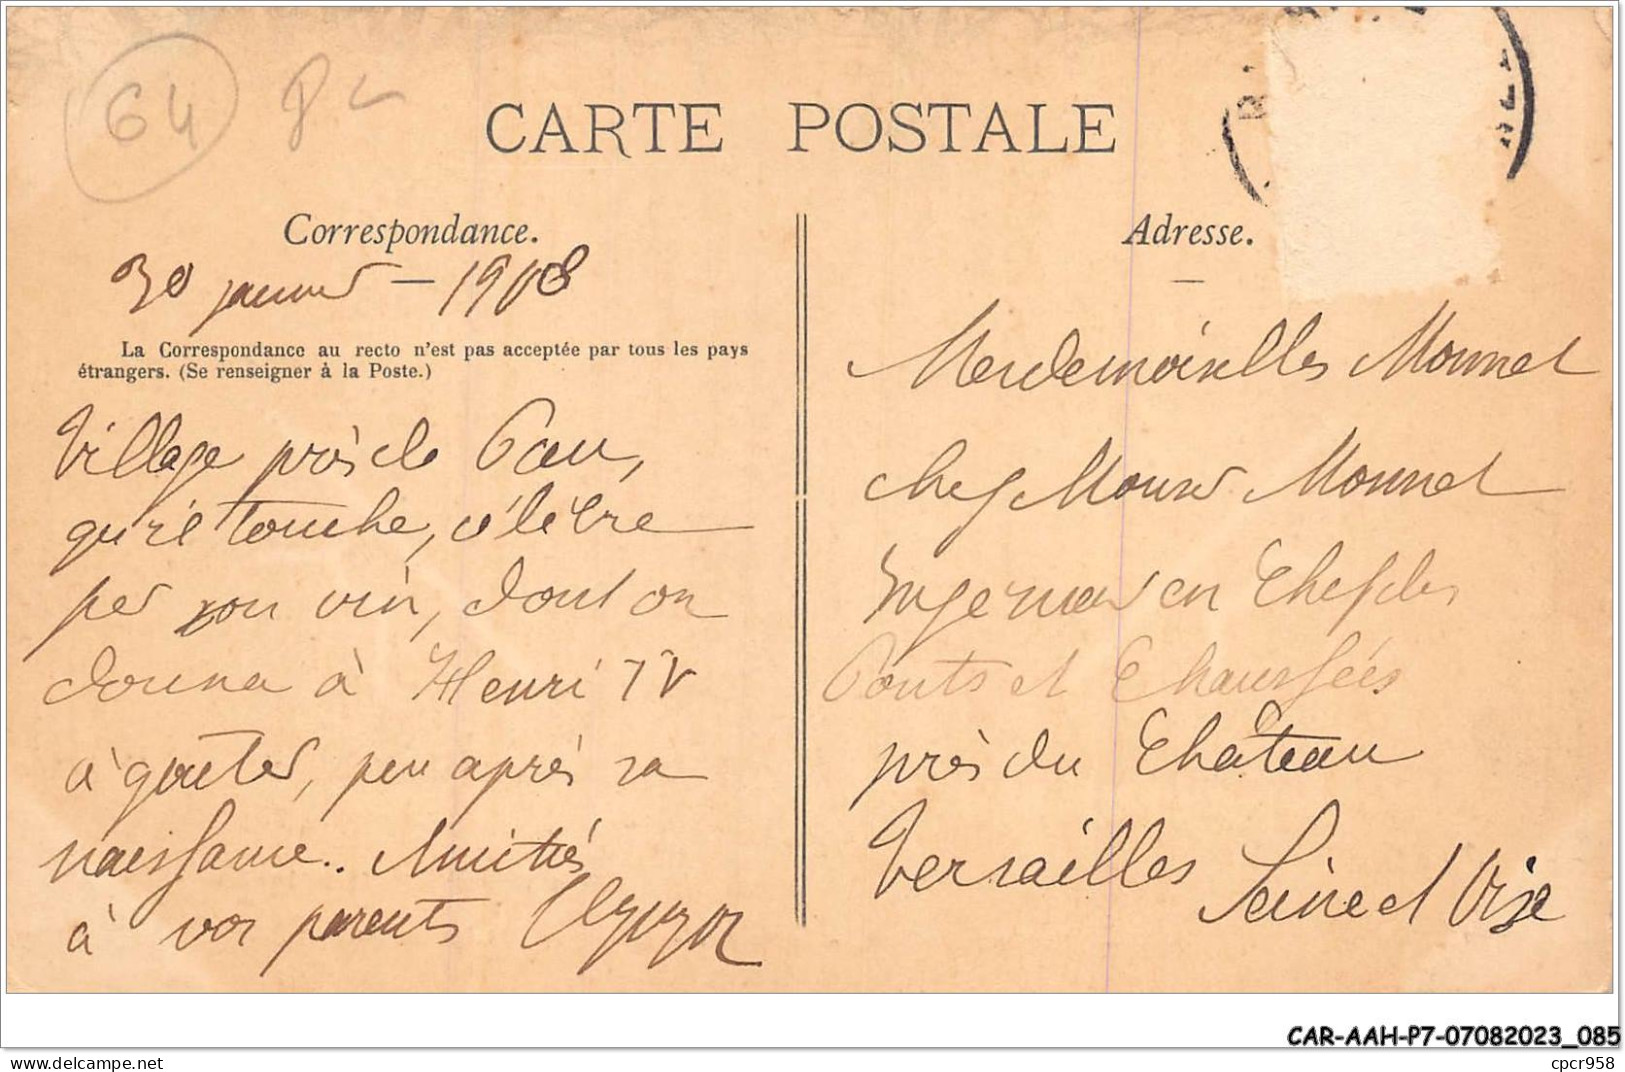 64
CARTE POSTALE
Correspondance.
30 janvier – 1908
La Correspondance au recto n'est pas acceptée par tous les pays
étrangers. (Se renseigner à la Poste.)
Village près de Pau,
qu'il touche, célèbre
par son vin, dont on
donna à Henri IV
à goûter, peu après sa
naissance.. Amitiés
à vos parents
Adresse.
Mesdemoiselles Monnet
chez Monnet
Ingénieur en Chef des
Ponts et Chaussées
près du Château
Versailles Seine et Oise
CAR-AAH-P7-07082023_085
cpcr958